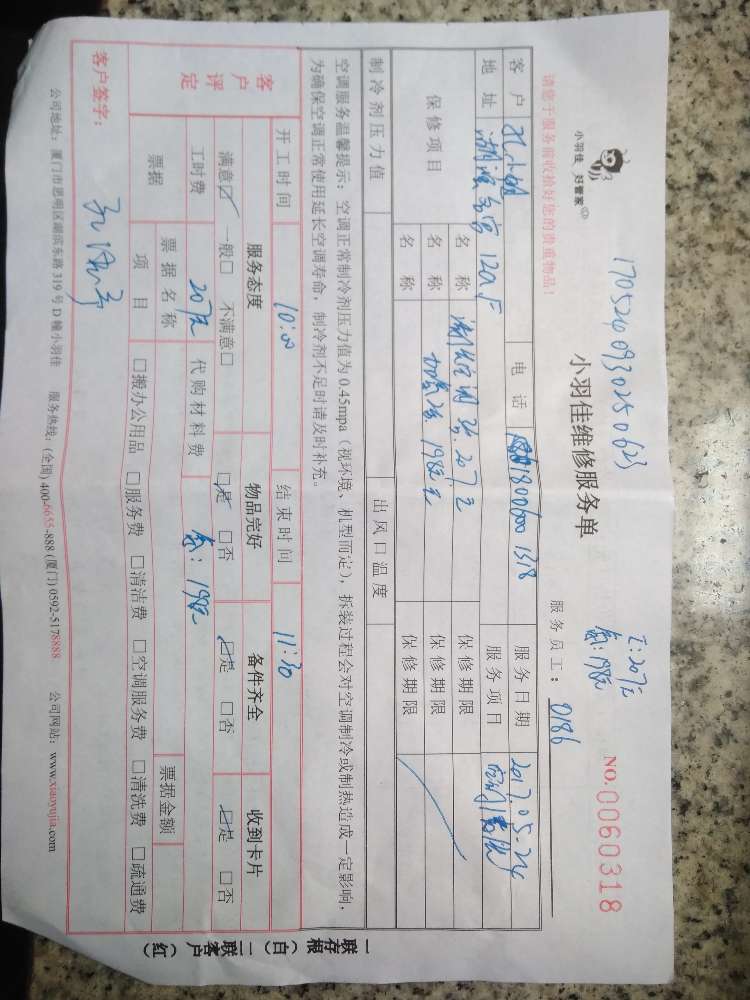 小羽佳 好管家
170524093025 0623
请您于服务前收拾好您的贵重物品!
小羽佳维修服务单
工:207元
氟:198元
NO.0060318
服务员工: 0186
客户 电话 18006001318 服务日期 2017.05-24
地址 1205 服务项目
保修项目 名称 207元 保修期限
名称 加氟 198元 保修期限
名称 保修期限
制冷剂压力值 出风口温度
空调服务温馨提示:空调正常制冷剂压力值为0.45mpa(视环境、机型而定),拆装过程会对空调制冷或制热造成一定影响,
为确保空调正常使用延长空调寿命,制冷剂不足时请及时补充。
开工时间 10:00 结束时间 11:30
客户评定
服务态度 物品完好 备件齐全 收到卡片
满意☑ 一般□ 不满意□ ☑是 □否 ☑是 □否 ☑是 □否
工时费 207元 代购材料费 氟:198元
票据 票据名称 票据金额
项目 □搬办公用品 □服务费 □清洁费 □空调服务费 □清洗费 □疏通费
客户签字:
公司地址:厦门市思明区湖滨东路319号D幢小羽佳 服务热线:(全国)400-6655-888(厦门)0592-5178888 公司网站:www.xiaoyujia.com
一联存根(白) 二联客户(红)